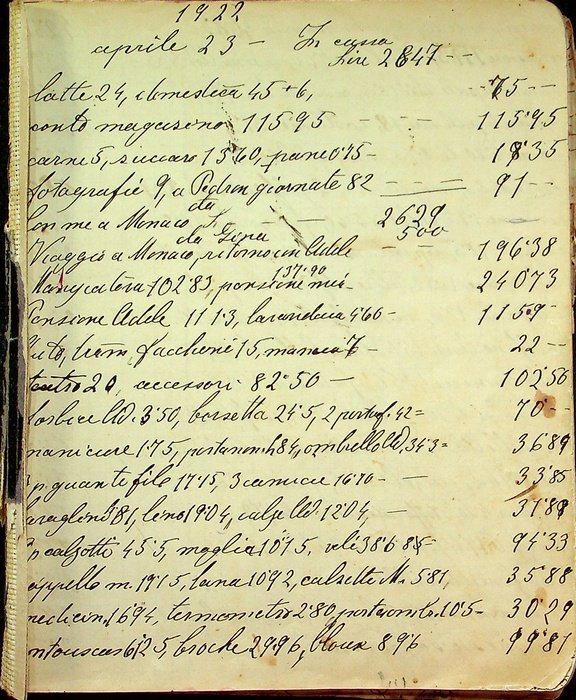 1922
aprile 23 - In cassa
Lire 2847 --
latte 24, domestica 45+6, 75 --
conto magaseno 115'95 - 115'95
carne 5, succaro 13'60, pane 0'75 - 18'35
fotografie 9, a Pedron giornate 82 - 91 --
Con me a Monaco da L. - 2629
500
Viaggio a Monaco, da Gena ritorno con Adde 196'38
Mangiatera 102'83, pensione mia 137.90 - 240'73
Pensione Adde 111'3, lavandaia 4'60 - 115.9 -
Auto, tram, facchini 15, mancia 7 - 22 --
teatro 20, accessori 82'50 - 102'50
borsetta 24'5, 2 portaf. 42 = 70 -
manicure 1'75, ombrello Ad. 34'3 = 36'89
guanti filo 17'15, 3 camicie 16'70 - 33'85
81, leno 19'04, calze Ad. 12'04, - 31'89
calzotti 45'5, maglia 10'15, veli 38'6 94'33
cappello m. 19'15, lana 10'92, calzette M. 5'81, 35'88
medicin. 16'94, termometro 2'80, 10'5 - 30'29
62'5, broche 29'96, blouse 8'96 99'81